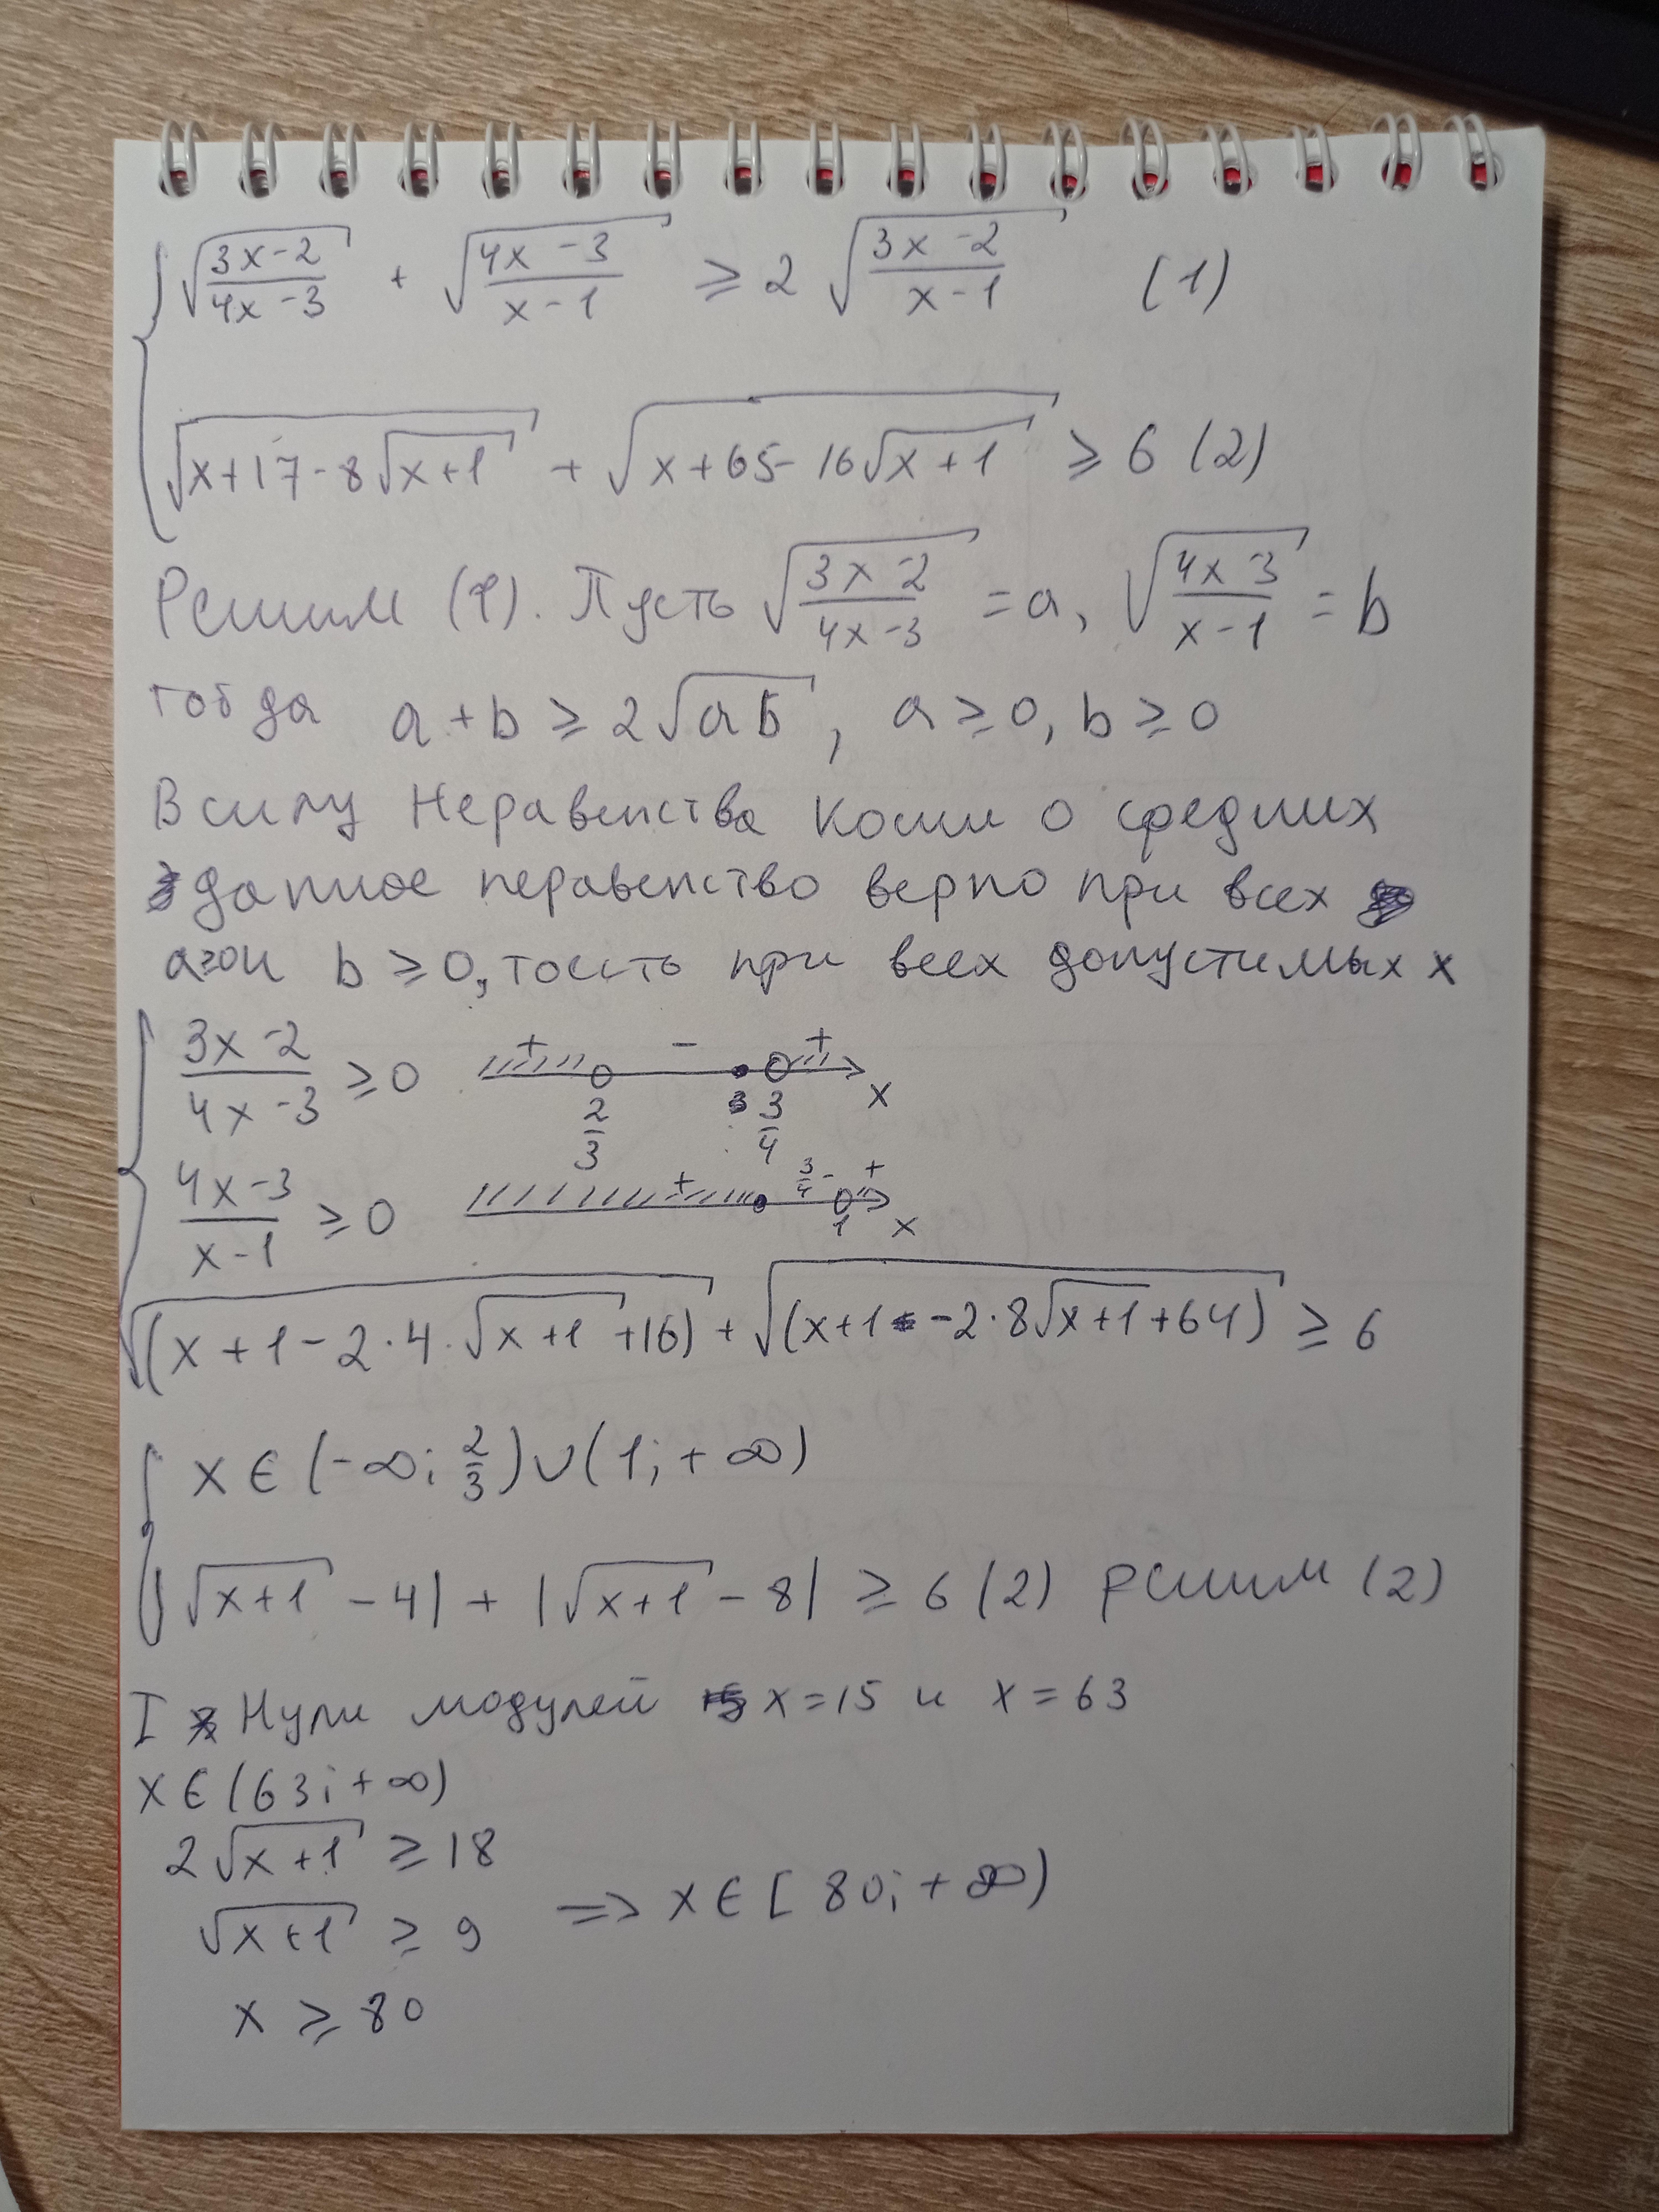 √((3x-2)/(4x-3)) + √((4x-3)/(x-1)) ≥ 2 √((3x-2)/(x-1)) (1)
√(x+17-8√(x+1)) + √(x+65-16√(x+1)) ≥ 6 (2)
Решим (1). Пусть √((3x-2)/(4x-3)) = a, √((4x-3)/(x-1)) = b
тогда a+b ≥ 2√(ab), a ≥ 0, b ≥ 0
В силу Неравенства Коши о средних
данное неравенство верно при всех
a≥0 и b ≥ 0, то есть при всех допустимых x
(3x-2)/(4x-3) ≥ 0 + - + x
2/3 3/4
(4x-3)/(x-1) ≥ 0 + 3/4 - + 1 x
√((x+1-2·4·√(x+1)+16)) + √((x+1-2·8√(x+1)+64)) ≥ 6
x ∈ (-∞; 2/3) ∪ (1; +∞)
|√(x+1) - 4| + |√(x+1) - 8| ≥ 6 (2) решим (2)
I Нули модулей x=15 и x=63
x ∈ (63; +∞)
2√(x+1) ≥ 18
√(x+1) ≥ 9 => x ∈ [80; +∞)
x ≥ 80